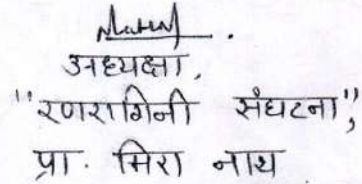 अध्यक्षा,
"रणरागिनी संघटना",
प्रा. मिरा नाथ